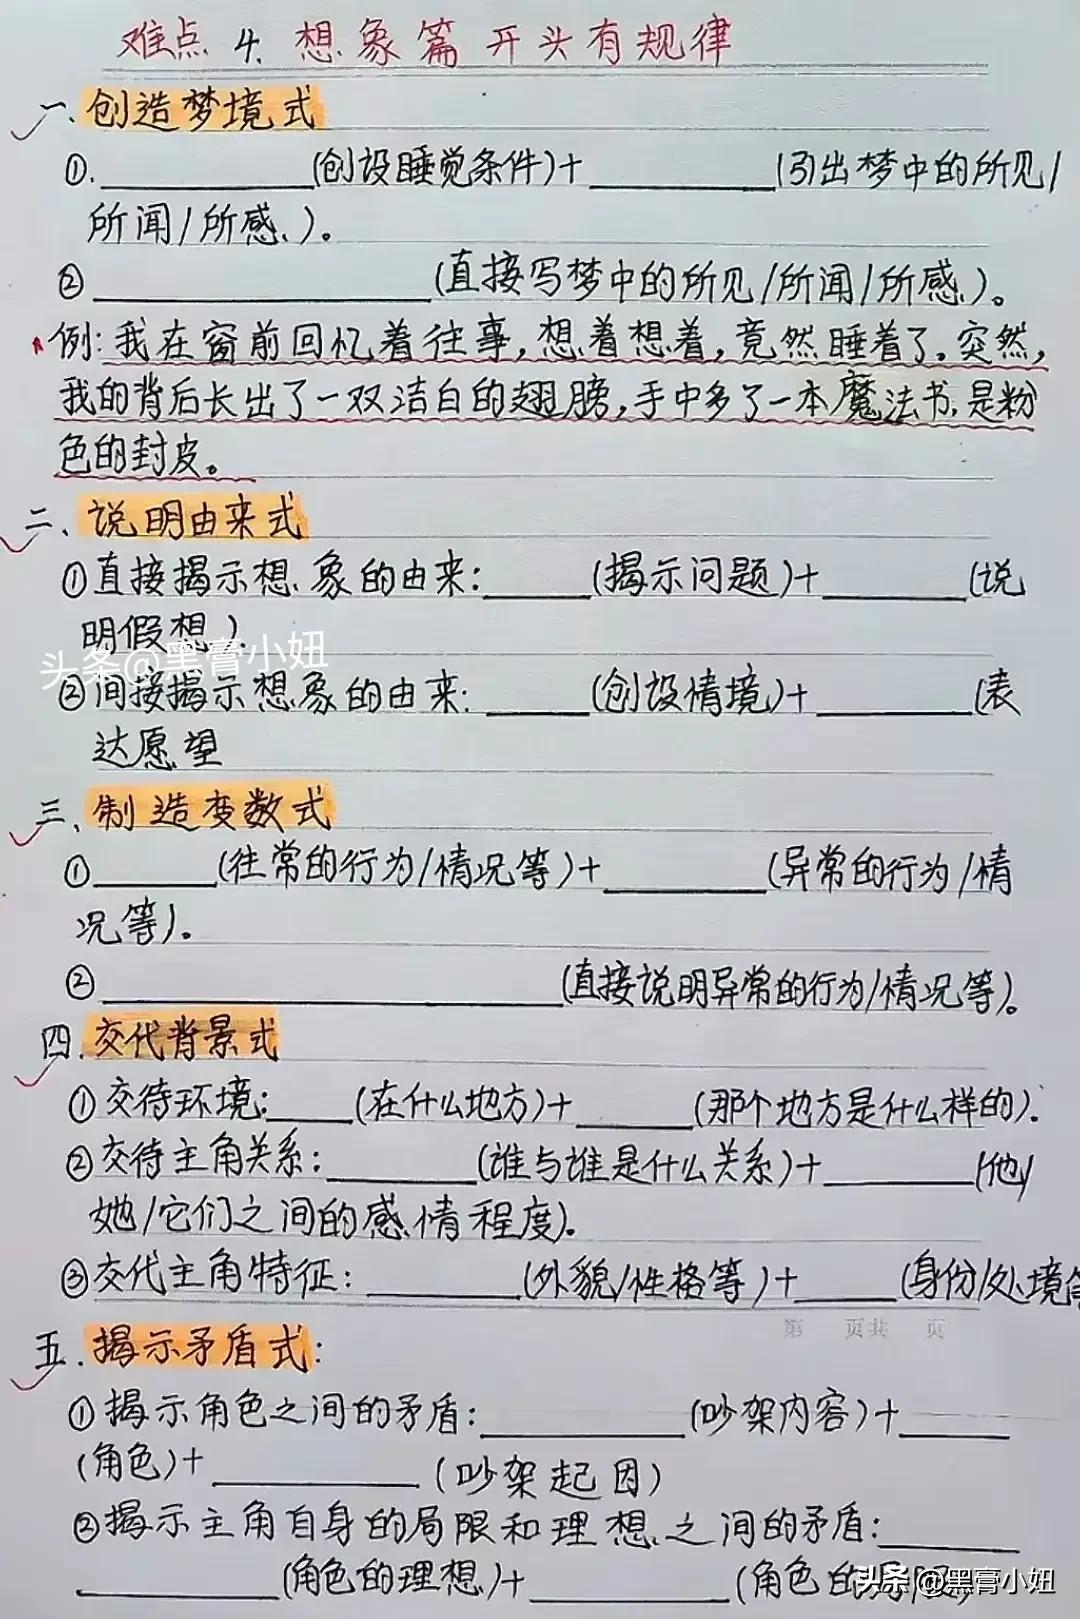 难点4.想象篇 开头有规律
一、创造梦境式
①.__________(创设睡觉条件)+__________(引出梦中的所见/
所闻/所感、)。
②__________(直接写梦中的所见/所闻/所感、)。
例:我在窗前回忆着往事,想着想着,竟然睡着了。突然,
我的背后长出了一双洁白的翅膀,手中多了一本魔法书,是粉
色的封皮。
二、说明由来式
①直接揭示想象的由来:_____(揭示问题)+_____(说
明假想)
头条@黑膏小妞
②间接揭示想象的由来:_____(创设情境)+_____(表
达愿望
三、制造变数式
①_____(往常的行为/情况等)+_____(异常的行为/情
况等)。
②__________(直接说明异常的行为/情况等)。
四.交代背景式
①交待环境:_____(在什么地方)+_____(那个地方是什么样的).
②交待主角关系:_____(谁与谁是什么关系)+_____(他/
她/它们之间的感情程度)。
③交代主角特征:_____(外貌/性格等)+_____(身份/处境
第 页共 页
五.揭示矛盾式:
①揭示角色之间的矛盾:_____(吵架内容)+_____
(角色)+_____(吵架起因)
②揭示主角自身的局限和理想之间的矛盾:_____
_____(角色的理想)+_____(角色的
头条 @黑膏小妞